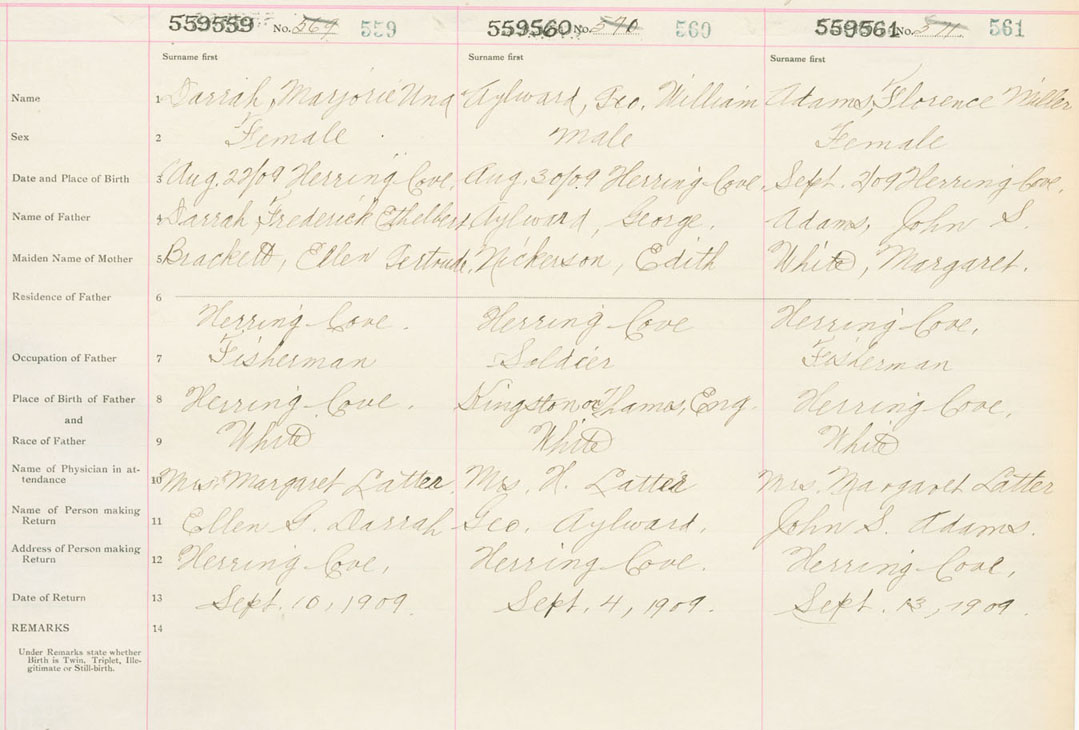 559559 No. 559 559560 No. 560 559561 No. 561
Surname first Surname first Surname first
Name 1 Darrah, Marjorie Una Aylward, Geo. William Adams, Florence Miller
Sex 2 Female Male Female
Date and Place of Birth 3 Aug. 22/09 Herring Cove. Aug. 30/09 Herring Cove. Sept. 2/09 Herring Cove.
Name of Father 4 Darrah Frederick Ethelbert Aylward, George. Adams, John S.
Maiden Name of Mother 5 Brackett, Ellen Gertrude. Nickerson, Edith White, Margaret.
Residence of Father 6
Herring Cove. Herring Cove Herring Cove,
Occupation of Father 7 Fisherman Soldier Fisherman
Place of Birth of Father 8 Herring Cove. Kingston on Thames, Eng. Herring Cove,
and
Race of Father 9 White White White
Name of Physician in at-
tendance 10 Mrs. Margaret Latter. Mrs. H. Latter Mrs. Margaret Latter
Name of Person making
Return 11 Ellen G. Darrah Geo. Aylward, John S. Adams.
Address of Person making
Return 12 Herring Cove, Herring Cove. Herring Cove,
Date of Return 13 Sept. 10, 1909. Sept. 4, 1909. Sept. 13, 1909.
REMARKS 14
Under Remarks state whether
Birth is Twin, Triplet, Ille-
gitimate or Still-birth.